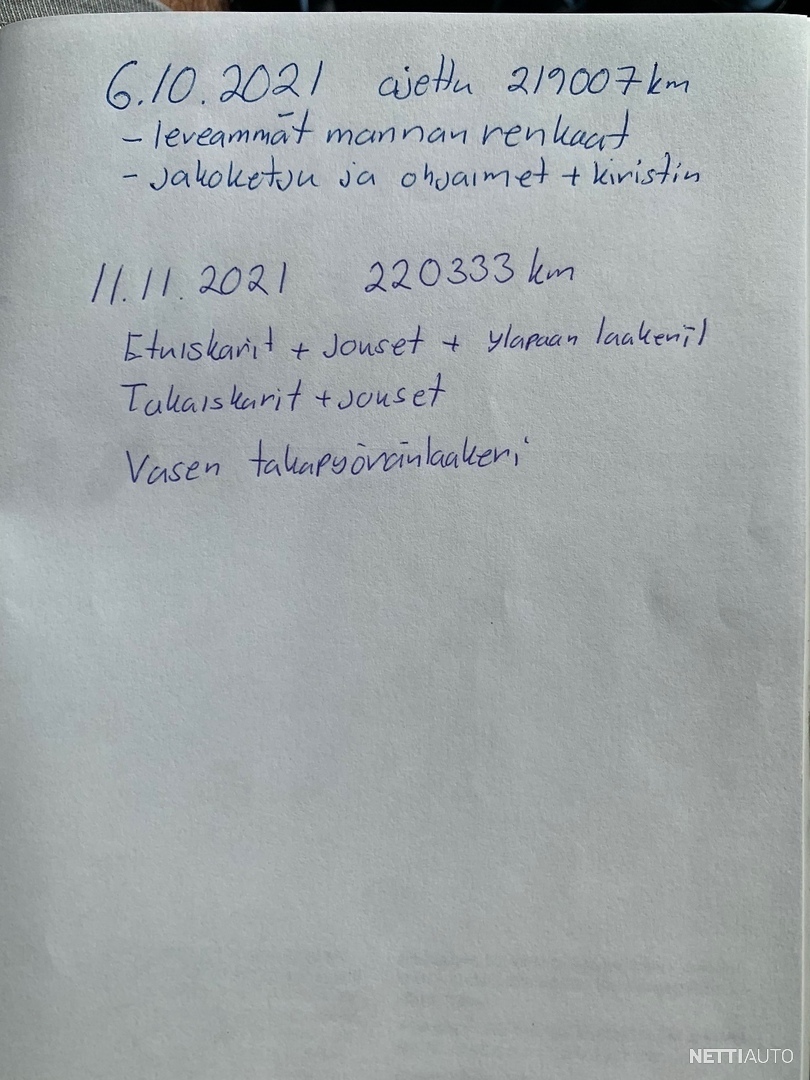 6.10.2021 ajettu 219007 km
- leveämmät mannan renkaat
- jakoketju ja ohjaimet + kiristin
11.11.2021 220333 km
Etuiskarit + jouset + yläpään laakerit
Takaiskarit + jouset
Vasen takapyöränlaakeri
NETTIAUTO